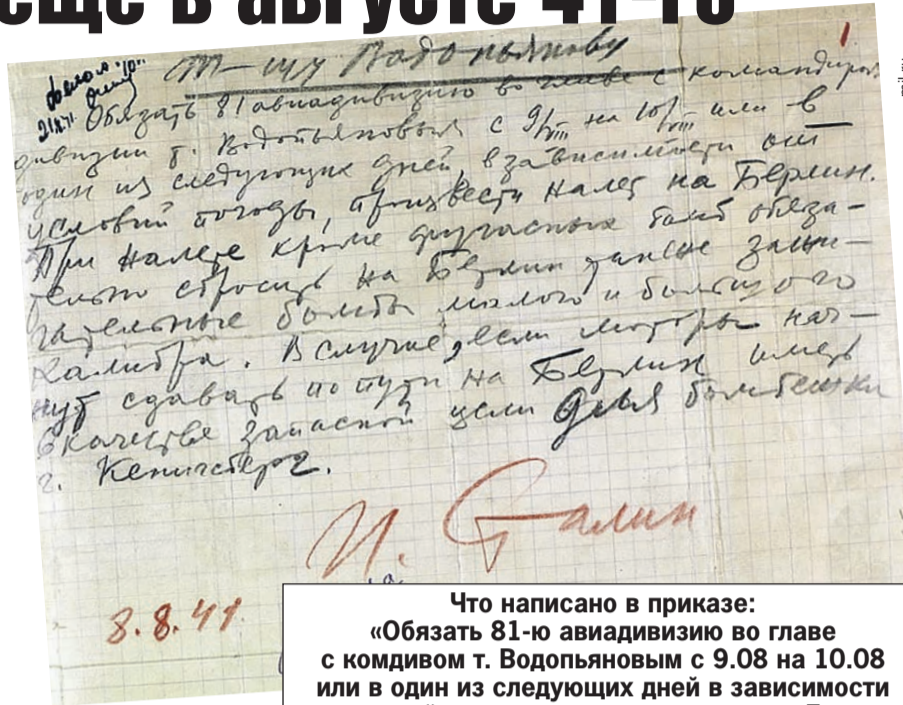 еще в августе 41-го
1
Т-щу Водопьянову
Обязать 81 авиадивизию во главе с командиром
дивизии т. Водопьяновым с 9/VIII на 10/VIII или в
один из следующих дней, в зависимости от
условий погоды, произвести налет на Берлин.
При налете кроме фугасных бомб обяза-
тельно сбросить на Берлин также зажи-
гательные бомбы малого и большого
калибра. В случае, если моторы нач-
нут сдавать по пути на Берлин иметь
в качестве запасной цели для бомбежки
г. Кенигсберг.
И. Сталин
8.8.41
Что написано в приказе:
«Обязать 81-ю авиадивизию во главе
с комдивом т. Водопьяновым с 9.08 на 10.08
или в один из следующих дней в зависимости